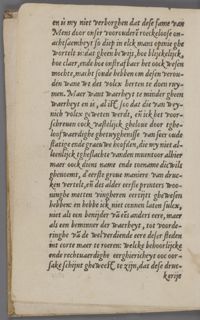 en is my niet verborghen dat dese fame van
Mentz door onser voorouders roeckeloose on-
achtsaemheyt so diep in elck mans opinie ghe
wortelt is: dat gheen bewijs, hoe blijckelijck,
hoe claer, ende hoe onstrafbaer het oock wesen
mochte, macht soude hebben om desen verou-
den wane wt des volcx herten te doen ruy-
men. Maer want waerheyt te minder gheen
waerheyt en is, al ist so dat die van wey-
nich volcx geweten werdt, en ick het voor-
screven oock vastelijck gheloue door ghe-
loofwaerdighe ghetuyghenisse van seer oude
statige ende graeuwe hoofden, die my niet al-
leenlijck tgheslachte vanden inuentoor alhier
maer oock dicmael zijnen name ende toename
ghenoemt, d'eerste groue maniere van druc-
ken vertelt, en des alder eersten printers woo-
ninghe metten vingheren eertijts ghewesen
hebben: en hebbe ick niet connen laten sulcx,
niet als een benijder van eens anders eere, maer
als een beminner der waerheyt, tot voorde-
ringhe van de welverdiende eere deser steden
int corte maer te roeren: welcke behoorlijcke
ende rechtuaerdighe eergiericheyt ooc oor-
sake schijnt gheweest te zijn, dat dese druc-
kerije